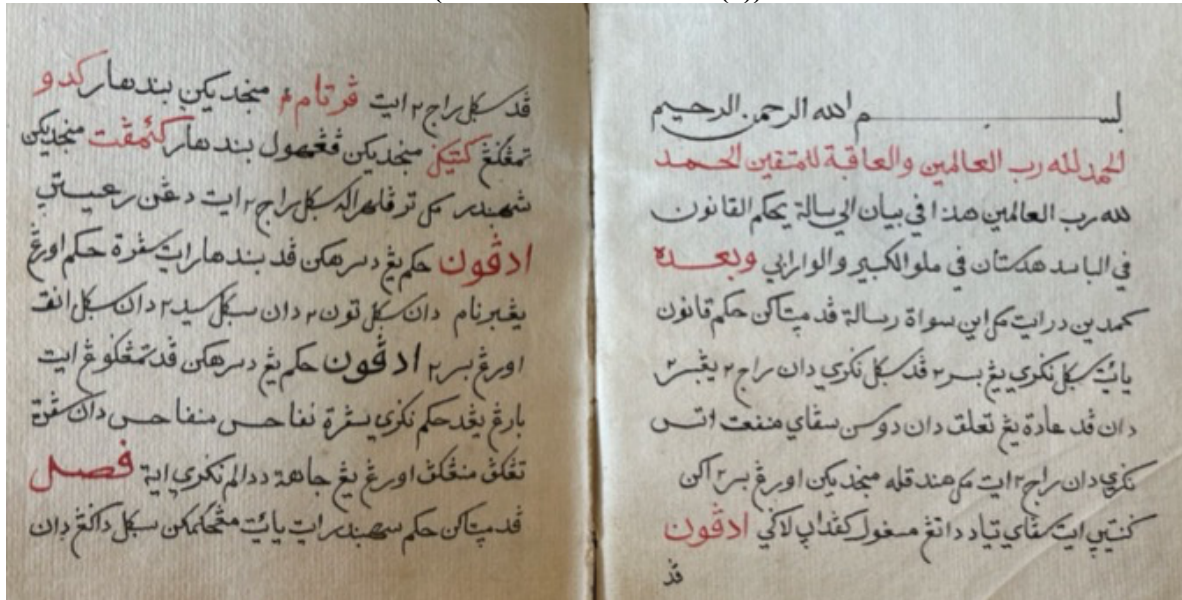 بسم الله الرحمن الرحيم
الحمد لله رب العالمين والعاقبة للمتقين الحمد
لله رب العالمين هذا في بيان الرسالة يحكم القانون
في الباسد هدستان في ملو الكبير والوارابي وبعده
كمدين درايت مك اين سواة رسالة ڤد مپتاكن حكم قانون
يائيت سكل نكري يڠ بسر٢ ڤد سكل نكري دان راج٢ يڠبسر٢
دان ڤد عادة يڠ تعلق دان دوسن سڤاي منفعت اتس
نكري دان راج٢ ايت مك هندقله منجديكن اورڠ بسر٢ اكن
كنتيي ايت سڤاي تياد داتڠ مسغول كڤداڽ لاكي ادڤون
ڤد
ڤد سكل راج٢ ايت ڤرتام٢ منجديكن بندهار كدو
تمڠكڠ كتيك منجديكن ڤڠهولو بندهار كئمڤت منجديكن
شهبندر مك ترڤليهراله سكل راج٢ ايت دڠن رعيتڽ
ادڤون حكم يڠ دسرهكن ڤد بندهارايت سڤرة حكم اورڠ
يڠبرنام دان سكل تون٢ دان سكل سيد٢ دان سكل انق
اورڠ بسر٢ ادڤون حكم يڠ دسرهكن ڤد تمڠكوڠ ايت
بارڠ يڠد حكم نكري سڤرة ڤفاحس منفاحس دان سڤرة
تڠكڤ منڠكڤ اورڠ يڠ جاهة ددالم نكري اية فصل
ڤد مپتاكن حكم سهبندر ايت يائيت مڠحكمكن سكل داكڠ دان